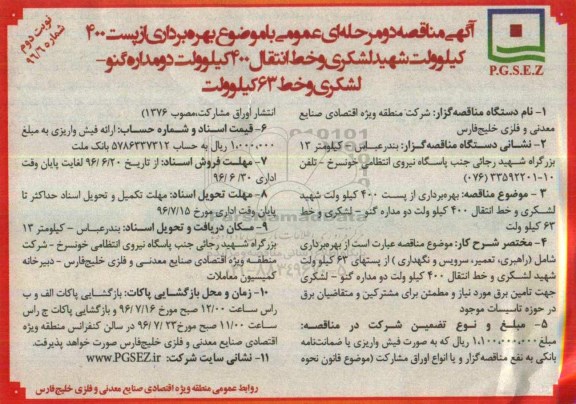 نوبت دوم
شماره ۹۶/۶
P.G.S.E.Z
آگهی مناقصه دو مرحله‌ای عمومی با موضوع بهره‌برداری از پست ۴۰۰
کیلو ولت شهید لشکری و خط انتقال ۴۰۰ کیلو ولت دو مداره گنو -
لشکری و خط ۶۳ کیلو ولت
۱- نام دستگاه مناقصه‌گزار: شرکت منطقه ویژه اقتصادی صنایع
معدنی و فلزی خلیج‌فارس
۲- نشانی دستگاه مناقصه‌گزار: بندرعباس - کیلومتر ۱۳
بزرگراه شهید رجائی جنب پاسگاه نیروی انتظامی خونسرخ - تلفن
۱۰-۳۳۵۹۲۲۰۱ (۰۷۶)
۳- موضوع مناقصه: بهره‌برداری از پست ۴۰۰ کیلو ولت شهید
لشکری و خط انتقال ۴۰۰ کیلو ولت دو مداره گنو - لشکری و خط
۶۳ کیلو ولت
۴- مختصر شرح کار: موضوع مناقصه عبارت است از بهره‌برداری
شامل (راهبری، تعمیر، سرویس و نگهداری) از پستهای ۶۳ کیلو ولت
شهید لشکری و خط انتقال ۴۰۰ کیلو ولت دو مداره گنو - لشکری
جهت تامین برق مورد نیاز و مطمئن برای مشترکین و متقاضیان برق
در حوزه تاسیسات موجود
۵- مبلغ و نوع تضمین شرکت در مناقصه:
مبلغ ۱.۱۰۰.۰۰۰.۰۰۰ ریال که به صورت فیش واریزی یا ضمانت‌نامه
بانکی به نفع مناقصه‌گزار و یا انواع اوراق مشارکت (موضوع قانون نحوه
انتشار اوراق مشارکت،مصوب ۱۳۷۶)
۶- قیمت اسناد و شماره حساب: ارائه فیش واریزی به مبلغ
۱.۰۰۰.۰۰۰ ریال به حساب ۵۷۸۶۳۳۷۳۱۲ بانک ملت
۷- مهلت فروش اسناد: از تاریخ ۹۶/۶/۲۰ لغایت پایان وقت
اداری ۹۶/۶/۳۰
۸- مهلت تحویل اسناد: مهلت تکمیل و تحویل اسناد حداکثر تا
پایان وقت اداری مورخ ۹۶/۷/۱۵
۹- مکان دریافت و تحویل اسناد: بندرعباس - کیلومتر ۱۳
بزرگراه شهید رجائی جنب پاسگاه نیروی انتظامی خونسرخ - شرکت
منطقه ویژه اقتصادی صنایع معدنی و فلزی خلیج‌فارس - دبیرخانه
کمیسیون معاملات
۱۰- زمان و محل بازگشایی پاکات: بازگشایی پاکات الف و ب
راس ساعت ۱۲/۰۰ صبح مورخ ۹۶/۷/۱۶ و بازگشایی پاکات ج راس
ساعت ۱۱/۰۰ صبح مورخ ۹۶/۷/۲۳ در سالن کنفرانس منطقه ویژه
اقتصادی صنایع معدنی و فلزی خلیج‌فارس صورت خواهد پذیرفت.
۱۱- نشانی سایت شرکت: www.PGSEZ.ir
روابط عمومی منطقه ویژه اقتصادی صنایع معدنی و فلزی خلیج‌فارس